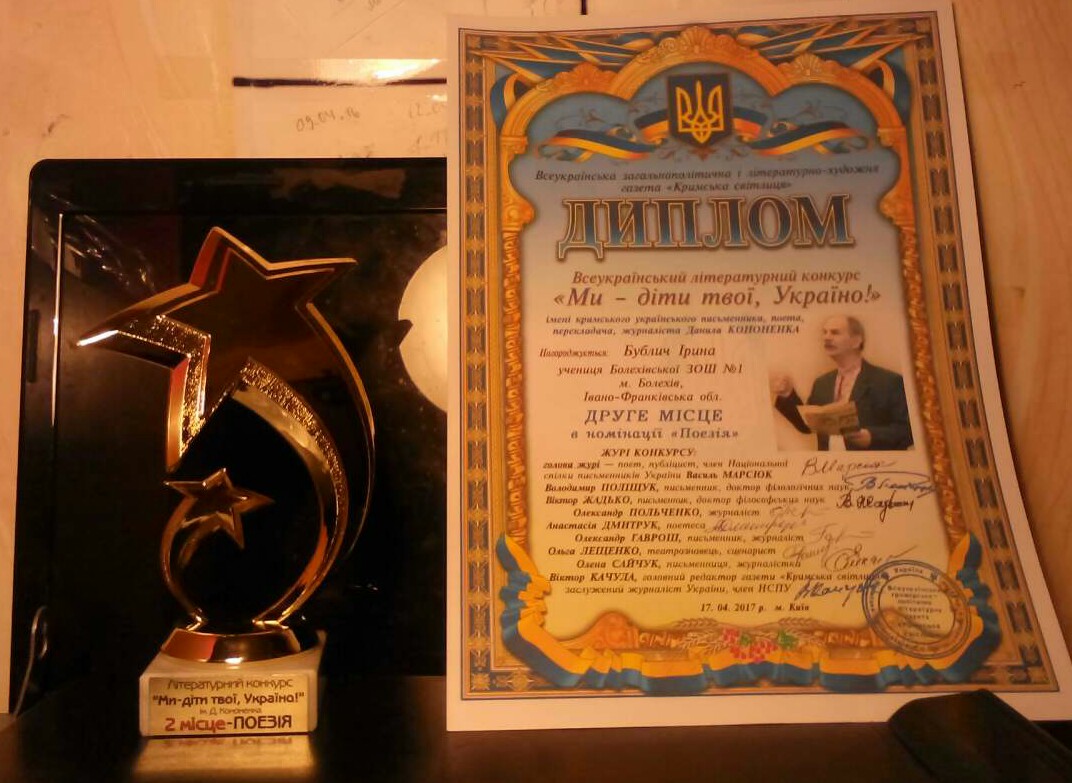 09.04.16
Всеукраїнська загальнополітична і літературно-художня
газета «Кримська світлиця»
ДИПЛОМ
Всеукраїнський літературний конкурс
«Ми – діти твої, Україно!»
імені кримського українського письменника, поета,
перекладача, журналіста Данила КОНОНЕНКА
Нагороджується: Бублич Ірина
учениця Болехівської ЗОШ №1
м. Болехів,
Івано-Франківська обл.
ДРУГЕ МІСЦЕ
в номінації «Поезія»
ЖУРІ КОНКУРСУ:
голова журі — поет, публіцист, член Національної
спілки письменників України Василь МАРСЮК
Володимир ПОЛІЩУК, письменник, доктор філологічних наук
Віктор ЖАДЬКО, письменник, доктор філософських наук
Олександр ПОЛЬЧЕНКО, журналіст
Анастасія ДМИТРУК, поетеса
Олександр ГАВРОШ, письменник, журналіст
Ольга ЛЕЩЕНКО, театрознавець, сценарист
Олена САЙЧУК, письменниця, журналістка
Віктор КАЧУЛА, головний редактор газети «Кримська світлиця»
заслужений журналіст України, член НСПУ
17. 04. 2017 р. м. Київ
Літературний конкурс
"Ми-діти твої, Україно!"
ім. Д. Кононенка
2 місце-ПОЕЗІЯ